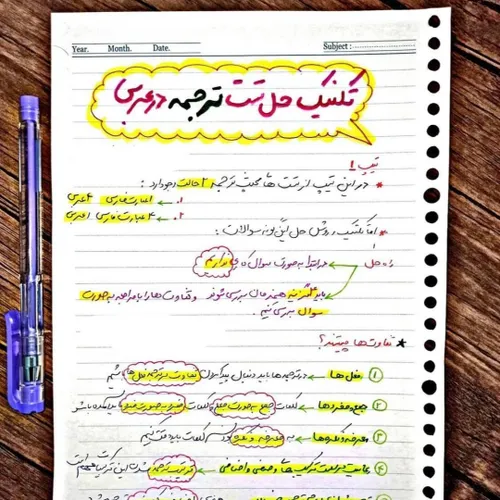 Year. Month. Date. Subject :
تکنیک حل تست ترجمه در عربی
تیپ 1
* در این تیپ از تست ها مبحث ترجمه ۲ حالت وجود دارد :
۱. ۱ عبارت فارسی ۴ عربی
۲. ۴ عبارت فارسی ۱ عربی
* اما تکنیک و روش حل این گونه سوالات :
راه حل
در ابتدا به صورت سوال کاری نداریم
باید ۴ گزینه همزمان بررسی شوند و تفاوت ها را با مراجعه به صورت
سوال بررسی کنیم.
* تفاوت ها چیستند؟
① فعل ها ← در ترجمه ها باید دنبال پیدا کردن تفاوت در ترجمه فعل ها باشیم
② جمع و مفردها ← کلمات جمع به صورت جمع و کلمات مفرد به صورت مفرد
③ معرفه و نکره ها ← به معرفه و نکره بودن کلمات باید دقت کنیم
④ ترکیب های وصفی و اضافی